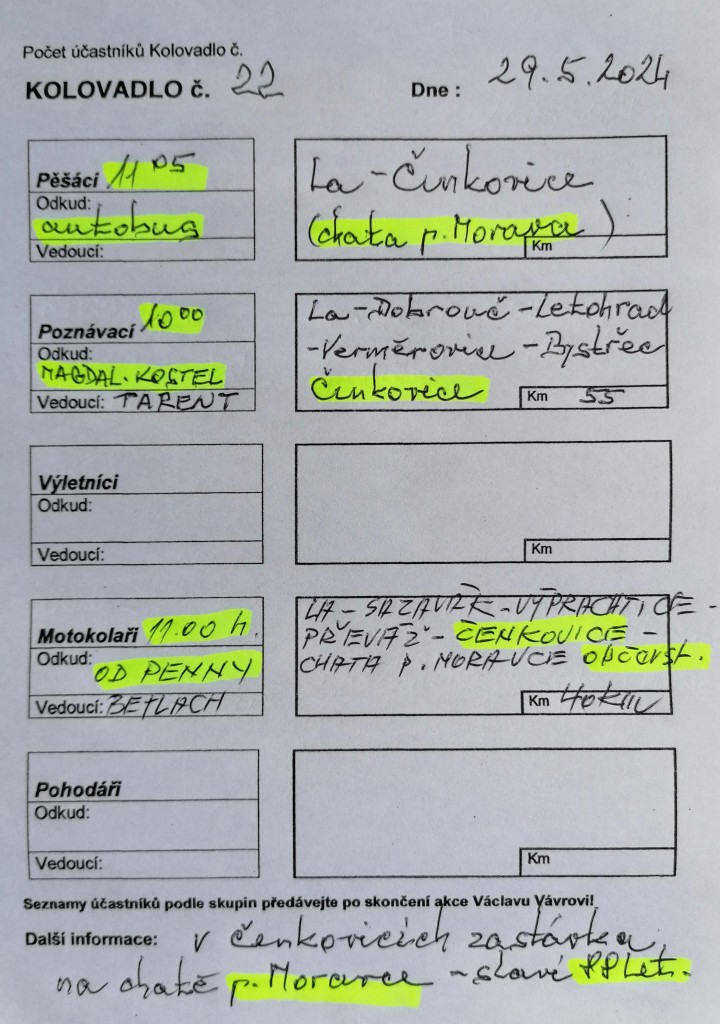 Počet účastníků Kolovadlo č.
KOLOVADLO č. 22 Dne : 29.5.2024
Pěšáci 11 05
Odkud:
autobus
Vedoucí:
La - Čenkovice
(chata p. Morava)
Km
Poznávací 10 00
Odkud:
MAGDAL. KOSTEL
Vedoucí: TARENT
La - Dobrouč - Letohrad
- Verměrovice - Bystřec
Čenkovice
Km 55
Výletníci
Odkud:
Vedoucí:
Km
Motokolaři 11.00 h.
Odkud:
OD PENNY
Vedoucí: BETLACH
LA - SÁZAVKA - VÝPRACHTICE -
PŘEVÁŽ - ČENKOVICE -
CHATA p. MORAVCE OBČERST.
Km 40 km
Pohodáři
Odkud:
Vedoucí:
Km
Seznamy účastníků podle skupin předávejte po skončení akce Václavu Vávrovi!
Další informace: v Čenkovicích zastávka
na chatě p. Moravce - slaví 88 let.